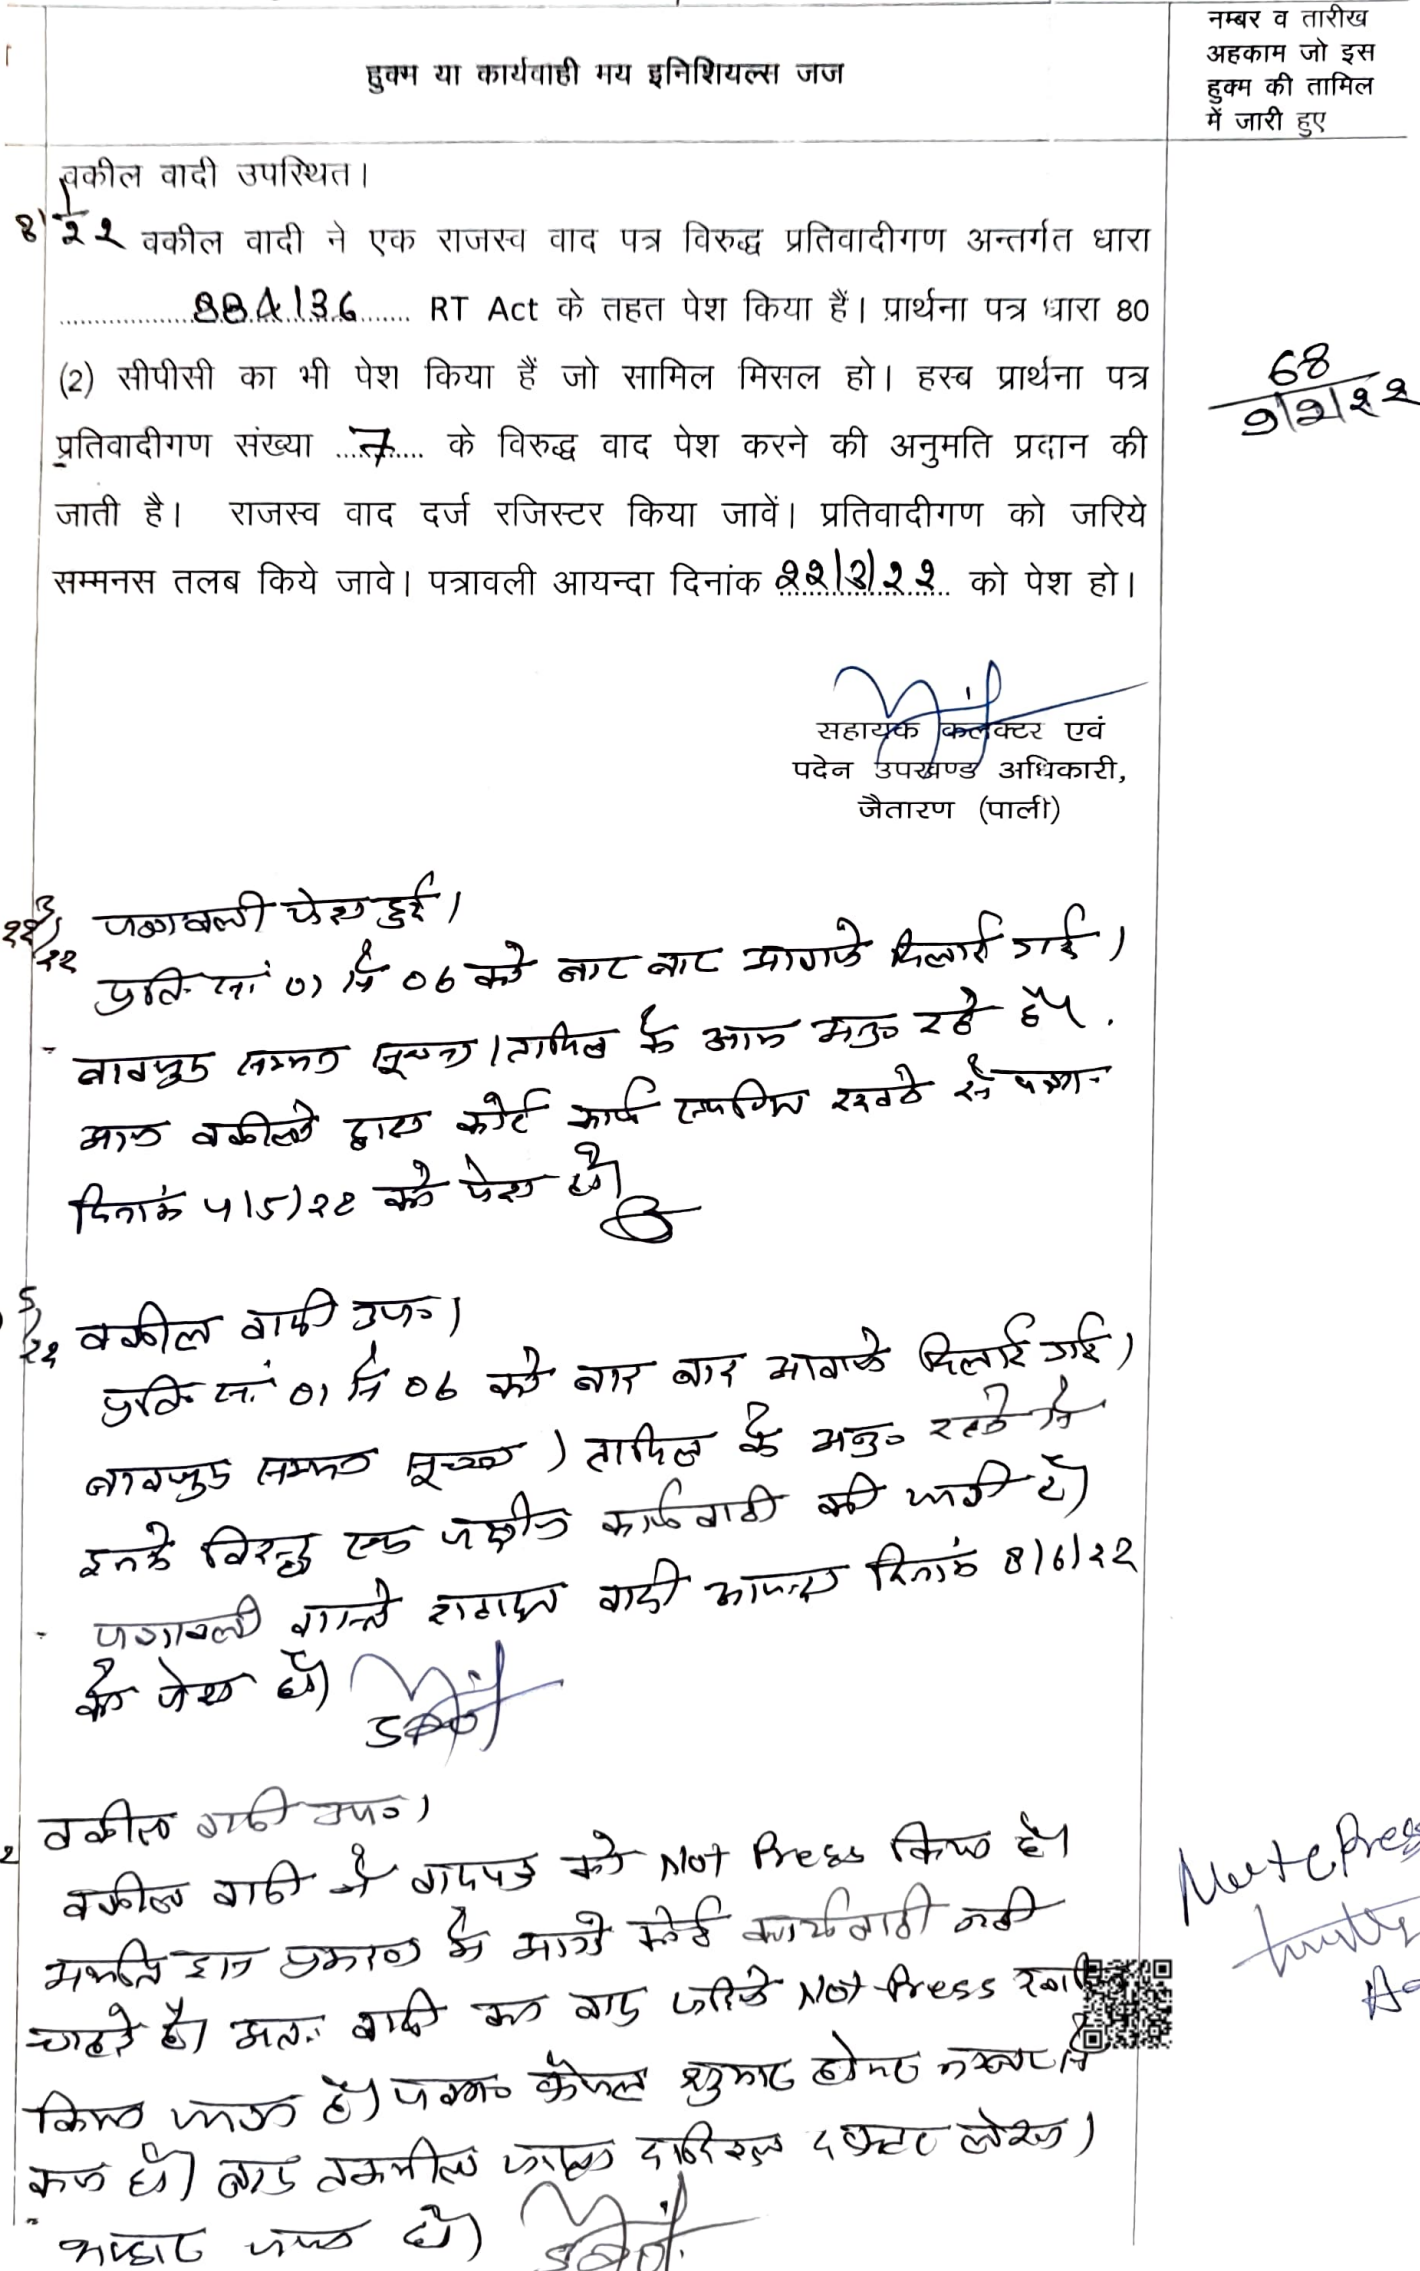 हुक्म या कार्यवाही मय इनिशियल्स जज
नम्बर व तारीख
अहकाम जो इस
हुक्म की तामिल
में जारी हुए
वकील वादी उपस्थित।
वकील वादी ने एक राजस्व वाद पत्र विरुद्ध प्रतिवादीगण अन्तर्गत धारा
88 136 RT Act के तहत पेश किया हैं। प्रार्थना पत्र धारा 80
(2) सीपीसी का भी पेश किया हैं जो सामिल मिसल हो। हस्ब प्रार्थना पत्र
68
प्रतिवादीगण संख्या ...7.... के विरुद्ध वाद पेश करने की अनुमति प्रदान की
जाती है। राजस्व वाद दर्ज रजिस्टर किया जावें। प्रतिवादीगण को जरिये
सम्मनस तलब किये जावे। पत्रावली आयन्दा दिनांक २२/3/२२ को पेश हो।
सहायक कलक्टर एवं
पदेन उपखण्ड अधिकारी,
जैतारण (पाली)
पत्रावली पेश हुई।
प्रति सं 01 से 06 को बार बार आवाजे दिलाई गई।
बावजुद सम्मन सूचना/तामिल के आज अनु० रहे है।
आज वकीलो द्वारा कोर्ट कार्य स्थगित रखने से
दिनांक 4/5/22 को पेश हो।
वकील वादी उप०।
प्रति सं 01 से 06 को बार बार आवाजे दिलाई गई।
बावजुद सम्मन सूचना / तामिल के अनु० रहने से
इनके विरूद्ध एक पक्षीय कार्यवाही की जाती है।
पत्रावली वास्ते वादी दिनांक 8/6/22
को पेश हो।
वकील वादी उप०।
वकील वादी ने वादपत्र को Not Press किया है।
इस प्रकरण में आगे कोई कार्यवाही नही
चाहते है। अतः वादी का वाद जरिये Not Press
किया जाता है। फैसल शुमार होकर नम्बर से
कम हो। बाद तकमील दाखिल दफ्तर
हो।